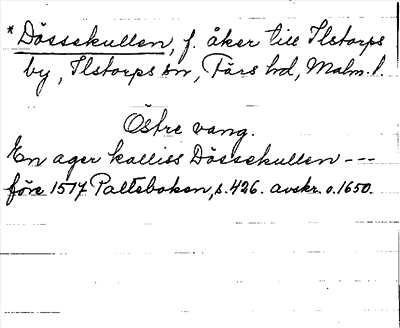 * Dössekullen, f. åker till Ilstorps
by, Ilstorps sn, Färs hd, Malm. l.
Östre vang.
En ager kalliss Dössekullen ---
före 1517 Palteboken, s. 426. avskr. o. 1650.